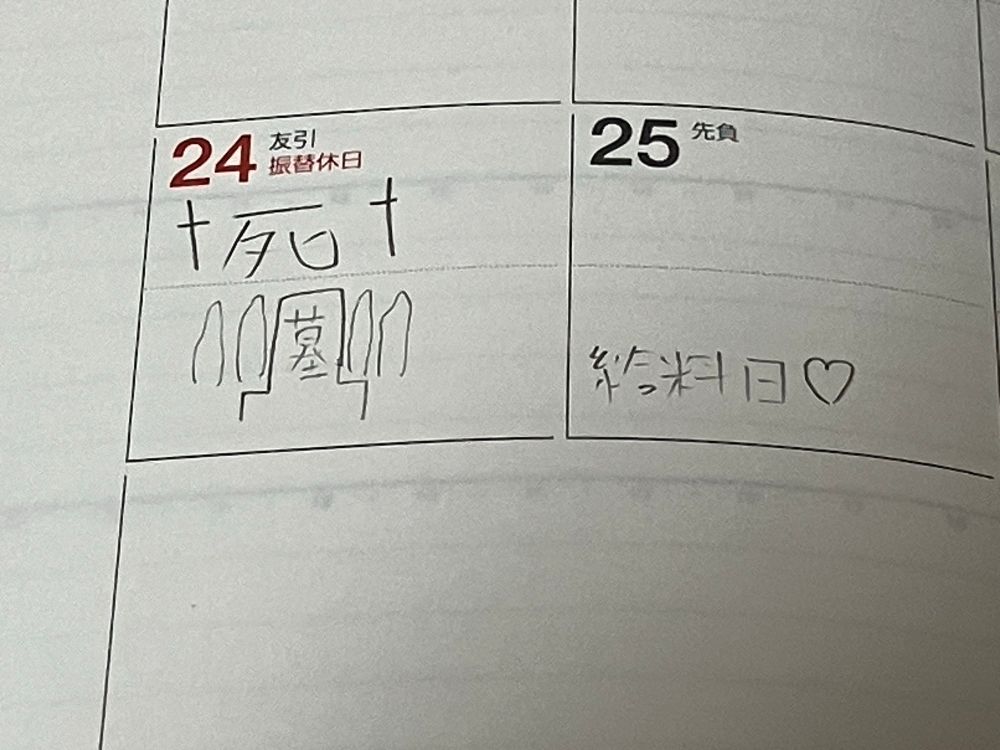 24 友引
振替休日
†死†
墓
25 先負
給料日♡